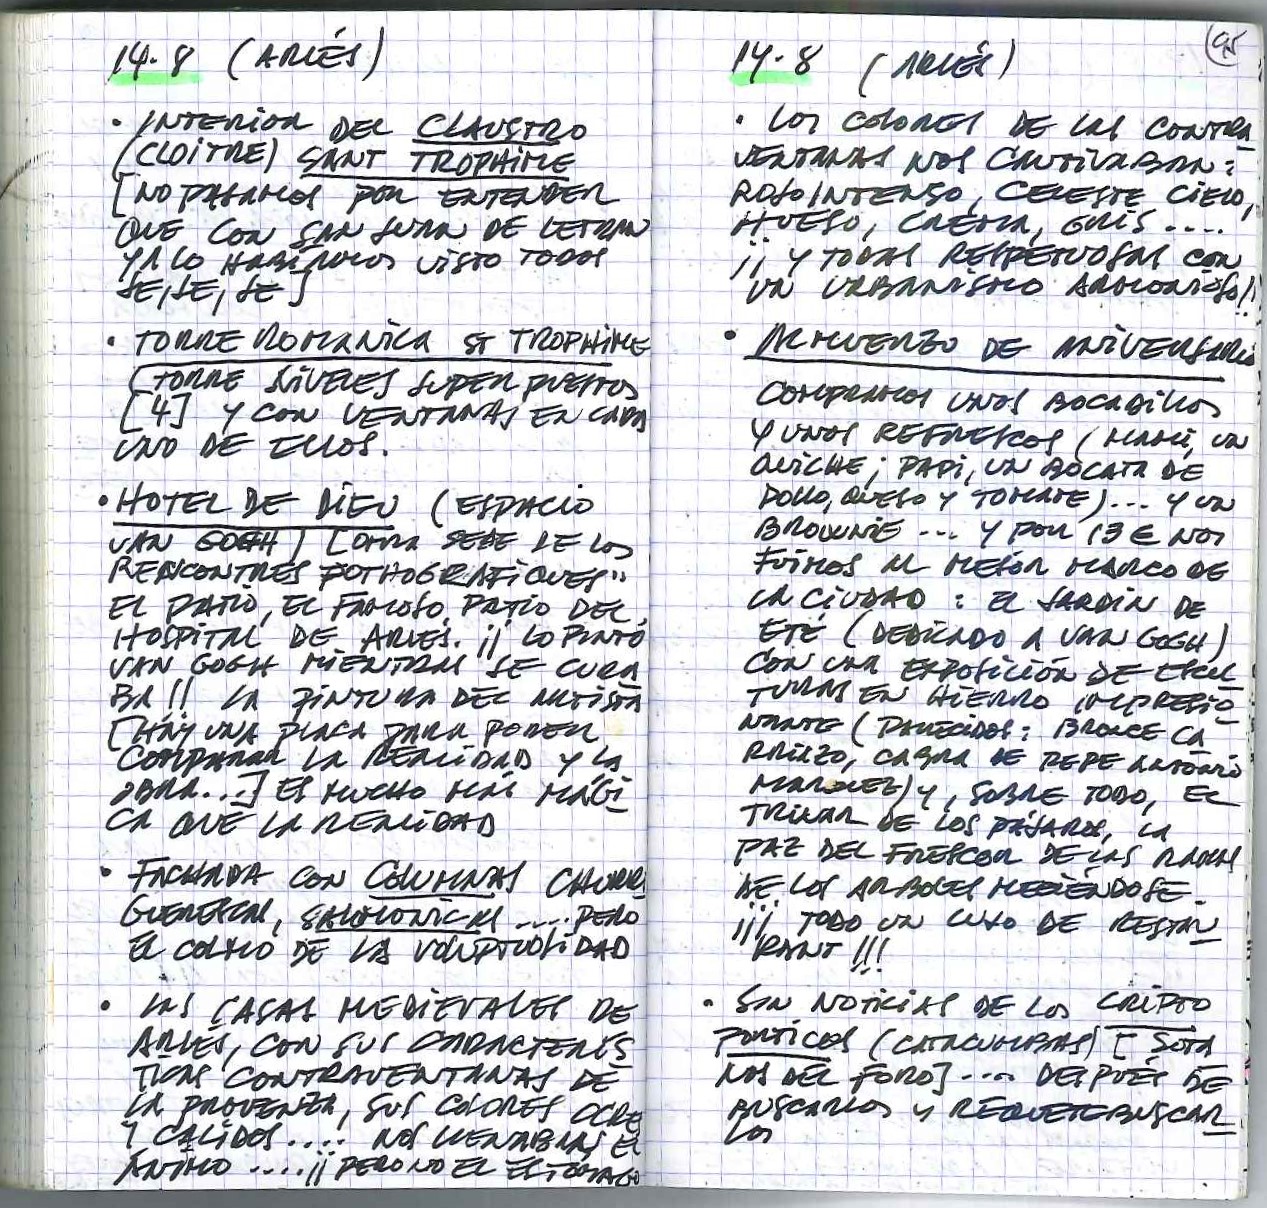 14·8 (ARLÉS)
· INTERIOR DEL CLAUSTRO
(CLOITRE) SANT TROPHIME
[NO PASAMOS POR ENTENDER
QUE CON SAN JUAN DE LETRAN
YA LO HABÍAMOS VISTO TODO
JE, JE, JE]
· TORRE ROMANICA ST TROPHIME
(TORRE NIVELES SUPERPUESTOS
[4] Y CON VENTANAS EN CADA
UNO DE ELLOS.
· HOTEL DE DIEU (ESPACIO
VAN GOGH) [OTRA SEDE DE LOS
RENCONTRES FOTHOGRAFIQUES"
EL PATIO, EL FAMOSO PATIO DEL
HOSPITAL DE ARLES. ¡¡ LO PINTÓ
VAN GOGH MIENTRAS SE CURA
BA!! LA PINTURA DEL ARTISTA
[HAY UNA PLACA PARA PODER
COMPARAR LA REALIDAD Y LA
OBRA...] ES MUCHO MÁS MÁGI
CA QUE LA REALIDAD
· FACHADA CON COLUMNAS CHURRI
GUERESCAS, SALOMONICAS .... PERO
EL COLMO DE LA VOLUPTUOSIDAD
· LAS CASAS MEDIEVALES DE
ARLÉS, CON SUS CARACTERÍS
TICAS CONTRAVENTANAS DE
LA PROVENZA, SUS COLORES OCRE
Y CALIDOS.... NOS LLENABAN EL
ÁNIMO ....¡¡ PERO NO EL ESTÓMAGO
95
14·8 (ARLÉS)
· LOS COLORES DE LAS CONTRA
VENTANAS NOS CAUTIVABAN:
ROJO INTENSO, CELESTE CIELO,
HUESO, CREMA, GRIS ....
¡¡ Y TODAS RESPETUOSAS CON
UN URBANISMO ARMONIOSO!!
· ALMUERZO DE ANIVERSARIO
COMPRAMOS UNOS BOCADILLOS
Y UNOS REFRESCOS (MAMI, UN
QUICHE; PAPI, UN BOCATA DE
POLLO, QUESO Y TOMATE)... Y UN
BROWNIE ... Y POR 13 € NOS
FUIMOS AL MEJOR MARCO DE
LA CIUDAD: EL JARDIN DE
ETÉ (DEDICADO A VAN GOGH)
CON UNA EXPOSICIÓN DE ESCUL
TURAS EN HIERRO IMPRESIO
NANTE (PARECIDOS: BRONCE CA
RRIZO, CABRA DE PEPE ANTONIO
MARQUEZ) Y, SOBRE TODO, EL
TRINAR DE LOS PÁJAROS, LA
PAZ DEL FRESCOR DE LAS RAMAS
DE LOS ARBOLES MECIÉNDOSE.
¡¡¡ TODO UN LUJO DE RESTAU
RANT!!!
· SIN NOTICIAS DE LOS CRIPTO
PORTICOS (CATACUMBAS) [SOTA
NOS DEL FORO] .... DESPUÉS DE
BUSCARLOS Y REQUETEBUSCAR
LOS